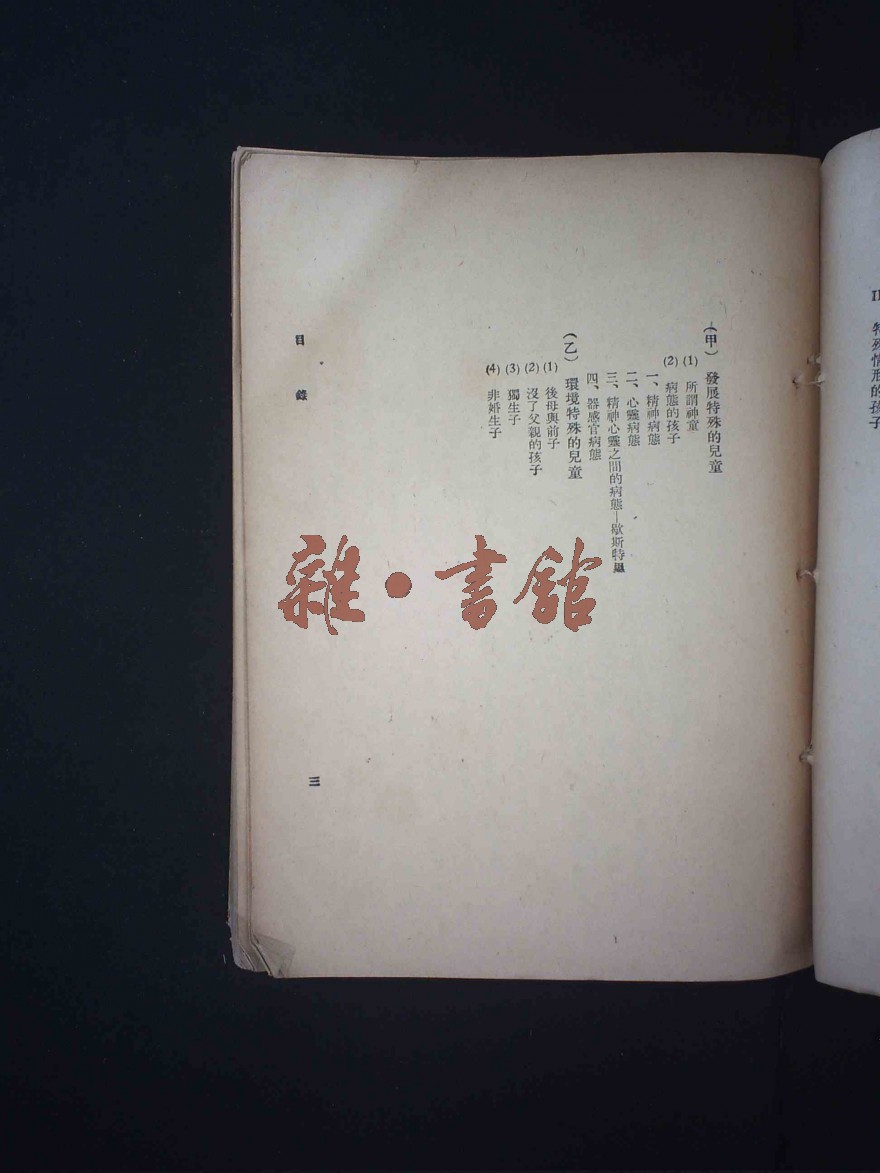 II 特殊情形的孩子
(甲) 發展特殊的兒童
(1) 所謂神童
(2) 病態的孩子
一、精神病態
二、心靈病態
三、精神心靈之間的病態—歇斯特
四、器感官病態
(乙) 環境特殊的兒童
(1) 後母與前子
(2) 沒了父親的孩子
(3) 獨生子
(4) 非婚生子
目錄
三
雜·書館